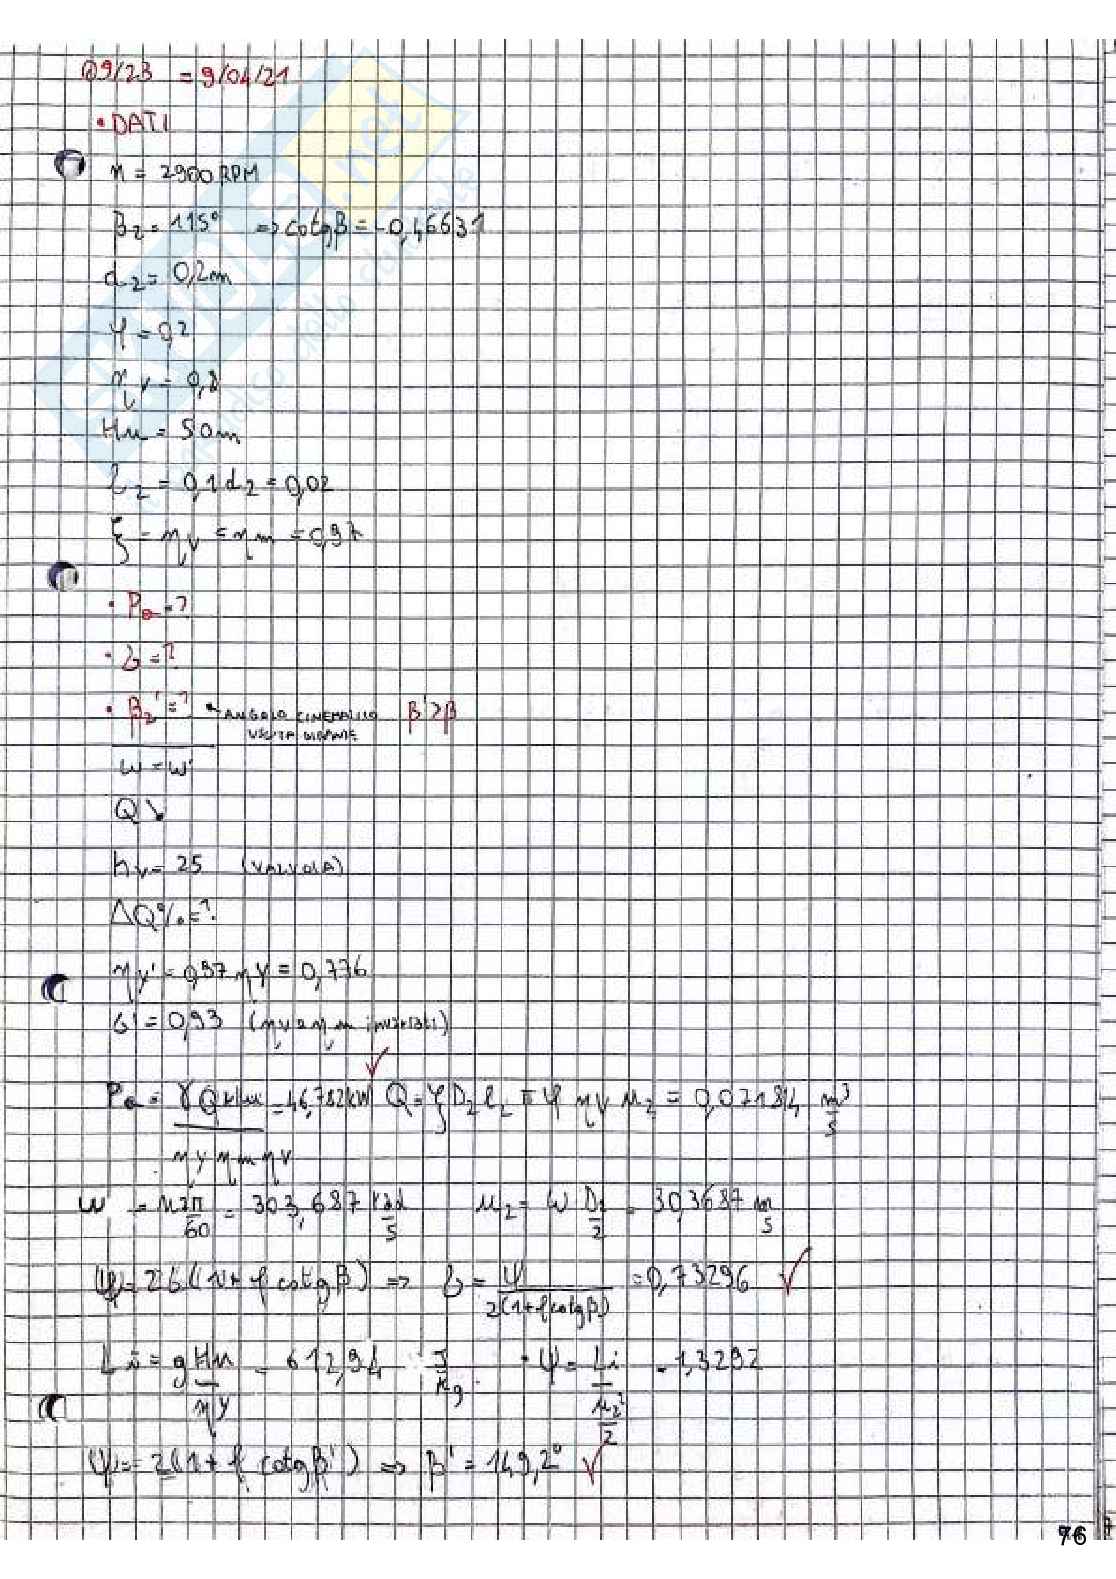 09/23 = 9/04/21
• DATI
n = 2900 RPM
β₂ = 115° => cotgβ = -0,46631
d₂ = 0,2m
φ = 0,2
ηy = 0,8
Hu = 50m
l₂ = 0,1d₂ = 0,02
ξ = ηv = ηm = 0,97
• Pa = ?
• σ = ?
• β₂' = ? ANGOLO CINEMATICO β' > β
ω = ω'
Q ↘
hv = 25 (VALVOLA)
ΔQ% = ?
ηy' = 0,97 ηy = 0,776
σ' = 0,93 (ηv e ηm invariati)
Pa = γQHu / ηy ηm ηv = 46,782kW ✓ Q = ξ D₂ l₂ π φ ηv u₂ = 0,07184 m³/s
ω = n2π/60 = 303,687 rad/s u₂ = ω D₂/2 = 30,3687 m/s
ψ = 2σ(1 + φ cotgβ) => σ = ψ / 2(1+φcotgβ) = 0,73296 ✓
Li = gHu/ηy = 612,94 J/kg • ψ = Li / u₂²/2 = 1,3292
ψ = 2(1 + φ cotgβ') => β' = 149,2° ✓
76